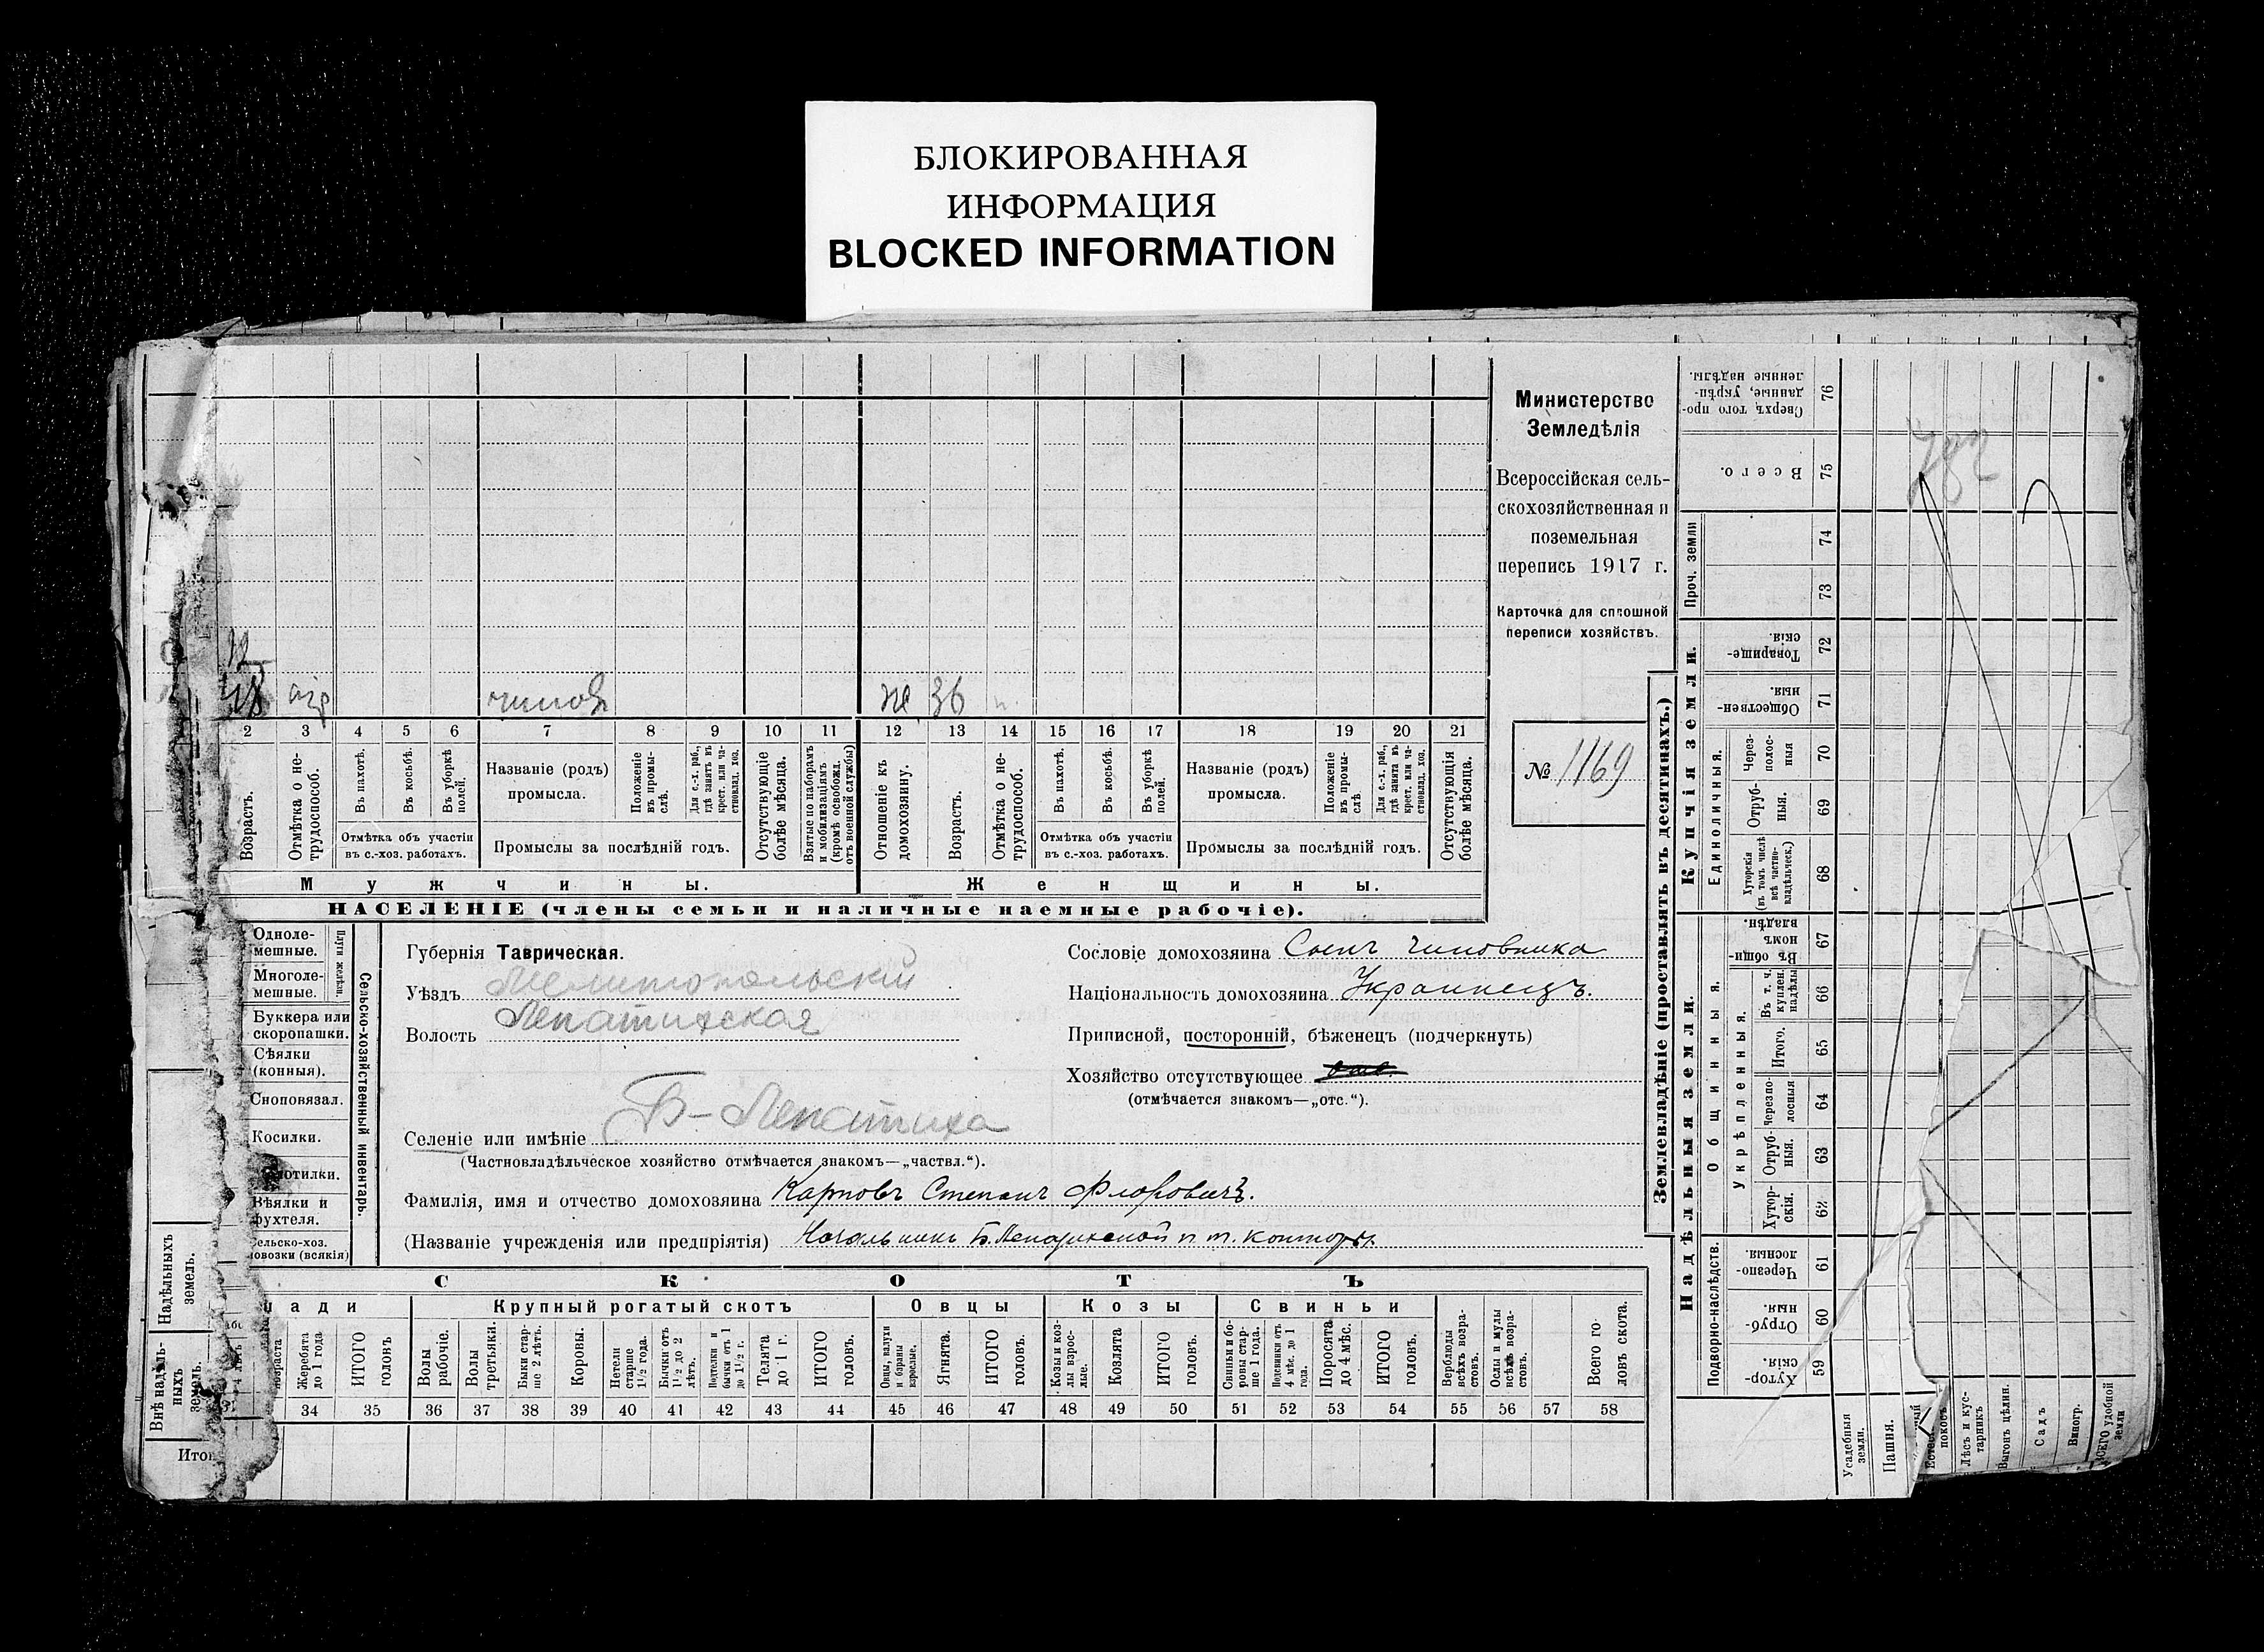 БЛОКИРОВАННАЯ
ИНФОРМАЦИЯ
BLOCKED INFORMATION
Министерство
Земледѣлія
Всероссійская сель-
скохозяйственная и
поземельная
перепись 1917 г.
Карточка для сплошной
переписи хозяйствъ.
№ 1169
12
48
чинов
же 36
2 3 4 5 6 7 8 9 10 11 12 13 14 15 16 17 18 19 20 21
Возрастъ.
Отмѣтка о не-
трудоспособ.
Въ пахотѣ.
Въ косьбѣ.
Въ уборкѣ
полей.
Отмѣтка объ участіи
въ с.-хоз. работахъ.
Названіе (родъ)
промысла.
Положеніе
въ промы-
слѣ.
Для с.-х. раб.,
гдѣ занятъ въ
крест. или ча-
стновлад. хоз.
Промыслы за послѣдній годъ.
Отсутствующіе
болѣе мѣсяца.
Взятые по наборамъ
и мобилизаціямъ
(кромѣ освобожд.
отъ военной службы)
Отношеніе къ
домохозяину.
Возрастъ.
Отмѣтка о не-
трудоспособ.
Въ пахотѣ.
Въ косьбѣ.
Въ уборкѣ
полей.
Отмѣтка объ участіи
въ с.-хоз. работахъ.
Названіе (родъ)
промысла.
Положеніе
въ промы-
слѣ
Для с.-х. раб.,
гдѣ занята въ
крест. или ча-
стновлад. хоз.
Промыслы за послѣдній годъ.
Отсутствующія
болѣе мѣсяца.
Мужчины.
Женщины.
НАСЕЛЕНІЕ (члены семьи и наличные наемные рабочіе).
Одноле-
мешные.
Многоле-
мешные.
Плуги желѣзн.
Буккера или
скоропашки.
Сѣялки
(конныя).
Сноповязал.
Косилки.
Вѣялки и
Сельско-хозяйственный инвентарь.
Губернія Таврическая.
Уѣздъ Мелитопольскій
Волость Лепатихская
Селеніе или имѣніе Б-Лепатиха
(Частновладѣльческое хозяйство отмѣчается знакомъ—„частвл.“).
Фамилія, имя и отчество домохозяина Карповъ Степанъ Флоровичъ.
(Названіе учрежденія или предпріятія) Начальникъ Б. Лепатихской п. т. конторы.
Сословіе домохозяина Сынъ чиновника
Національность домохозяина Украинецъ.
Приписной, посторонній, бѣженецъ (подчеркнуть)
Хозяйство отсутствующее
(отмѣчается знакомъ—„отс.“).
СКОТЪ
Крупный рогатый скотъ
Овцы
Козы
Свиньи
Жеребята
до 1 года
ИТОГО
головъ
Волы
рабочіе.
Волы
третьяки.
Быки стар-
ше 2 лѣтъ.
Коровы.
Нетели
старше
1½ года.
Бычки отъ
1½ до 2
лѣтъ.
Подтелки и
бычки отъ 1
до 1½ г.
Телята
до 1 г.
ИТОГО
головъ.
Овцы, валухи
и бараны
взрослые.
Ягнята.
ИТОГО
головъ.
Козы и коз-
лы взрос-
лые.
Козлята
ИТОГО
головъ.
Свиньи и бо-
ровы стар-
ше 1 года.
Подсвинки отъ
4 мѣс. до 1
года.
Поросята
до 4 мѣс.
ИТОГО
головъ.
Верблюды
всѣхъ возра-
стовъ.
Ослы и мулы
всѣхъ возра-
стовъ.
Всего го-
ловъ скота.
34 35 36 37 38 39 40 41 42 43 44 45 46 47 48 49 50 51 52 53 54 55 56 57 58
Надѣльныхъ
земель.
Внѣ надѣль-
ныхъ
земель.
Землевладѣніе (проставлять въ десятинахъ.)
Надѣльныя земли.
Купчія земли.
Проч. земли
Подворно-наслѣдств.
Общинныя.
Укрѣпленныя.
Единоличныя.
Сверхъ того про-
данные, укрѣп-
ленные надѣлы.
76
Всего.
75
74
73
Товарище-
скія.
72
Обществен-
ныя.
71
Через-
полос-
ныя
70
Отруб-
ныя.
69
Хуторскія
(въ томъ числѣ
всѣ частно-
владѣльческ.)
68
Въ общин-
номъ
владѣн.
67
Въ т. ч.
куплен.
надѣлы
66
Итого.
65
Черезпо-
лосныя
64
Отруб-
ныя.
63
Хутор-
скія.
62
Черезпо-
лосныя.
61
Отруб-
ныя.
60
Хутор-
скія.
59
Усадебныя
земли.
Пашня.
Лѣсъ и кус-
тарникъ
Выгонъ цѣлин.
Садъ
Виногр.
Всего удобной
земли
782